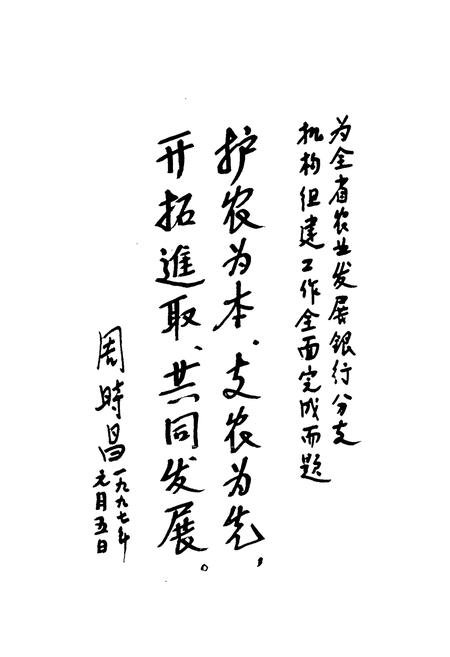 为全省农业发展銀行分支
机构组建工作全面完成而题
护农为本、支农为先，
开拓進取、共同发展。
周時昌
一九九七年
元月五日